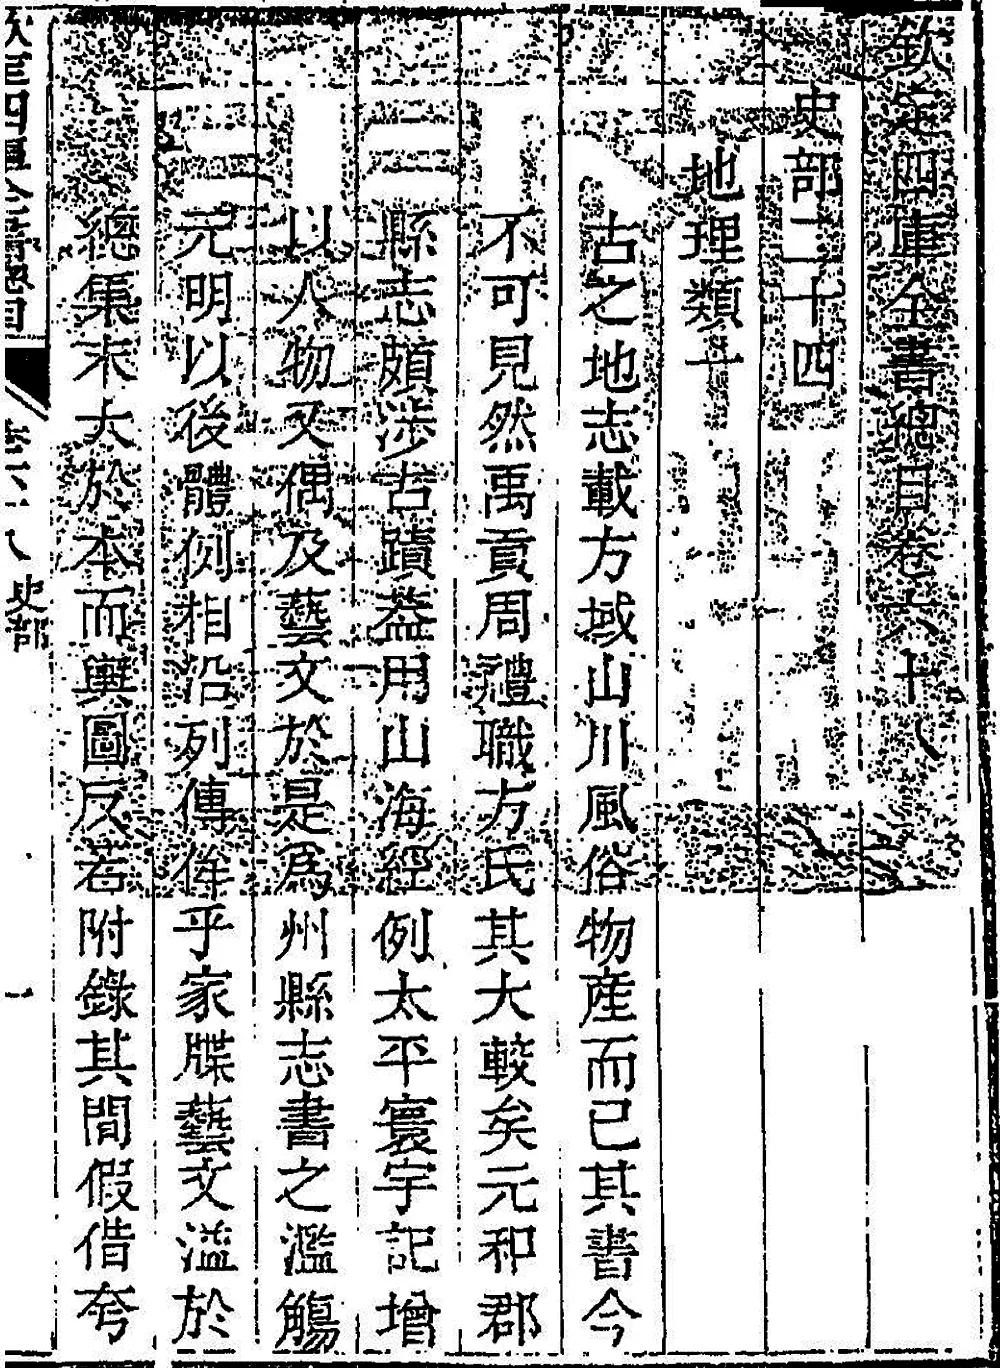 欽定四庫全書總目卷六十八
史部二十四
地理類一
古之地志載方域山川風俗物產而已其書今
不可見然禹貢周禮職方氏其大較矣元和郡
縣志頗涉古蹟蓋用山海經例太平寰宇記增
以人物又偶及藝文於是爲州縣志書之濫觴
元明以後體例相沿列傳侔乎家牒藝文溢於
總集末大於本而輿圖反若附錄其間假借夸
欽定四庫全書總目 卷六十八 史部 一